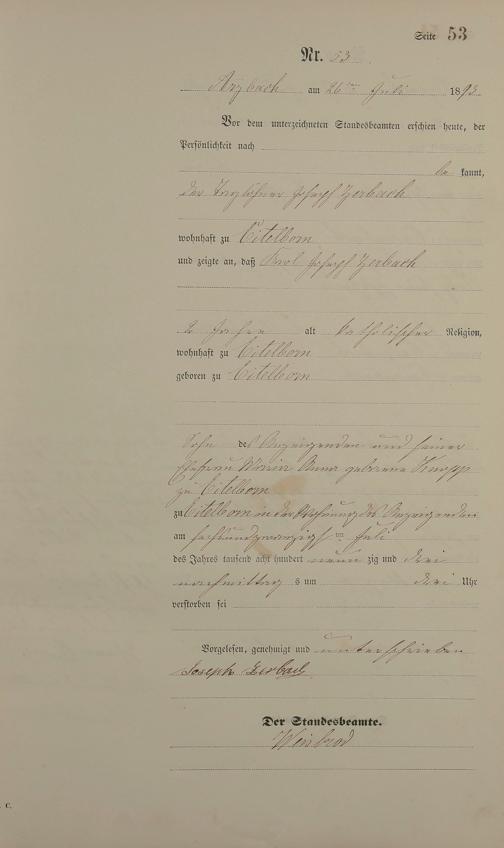 Seite 53
Nr. 53
Arzbach am 26ten Juli 1893
Vor dem unterzeichneten Standesbeamten erschien heute, der
Persönlichkeit nach
be kannt,
der Tagelöhner Joseph Zerbach
wohnhaft zu Eitelborn
und zeigte an, daß Karl Joseph Zerbach
2 Jahre alt katholischer Religion,
wohnhaft zu Eitelborn
geboren zu Eitelborn
Sohn des Anzeigenden und seiner
Ehefrau Maria Anna geborene Knopp
zu Eitelborn
zu Eitelborn in der Wohnung des Anzeigenden
am sechsundzwanzigsten Juli
des Jahres tausend acht hundert neun zig und drei
nachmittag s um drei Uhr
verstorben sei
Vorgelesen, genehmigt und unterschrieben
Joseph Zerbach
Der Standesbeamte.
Weinbrod
C.